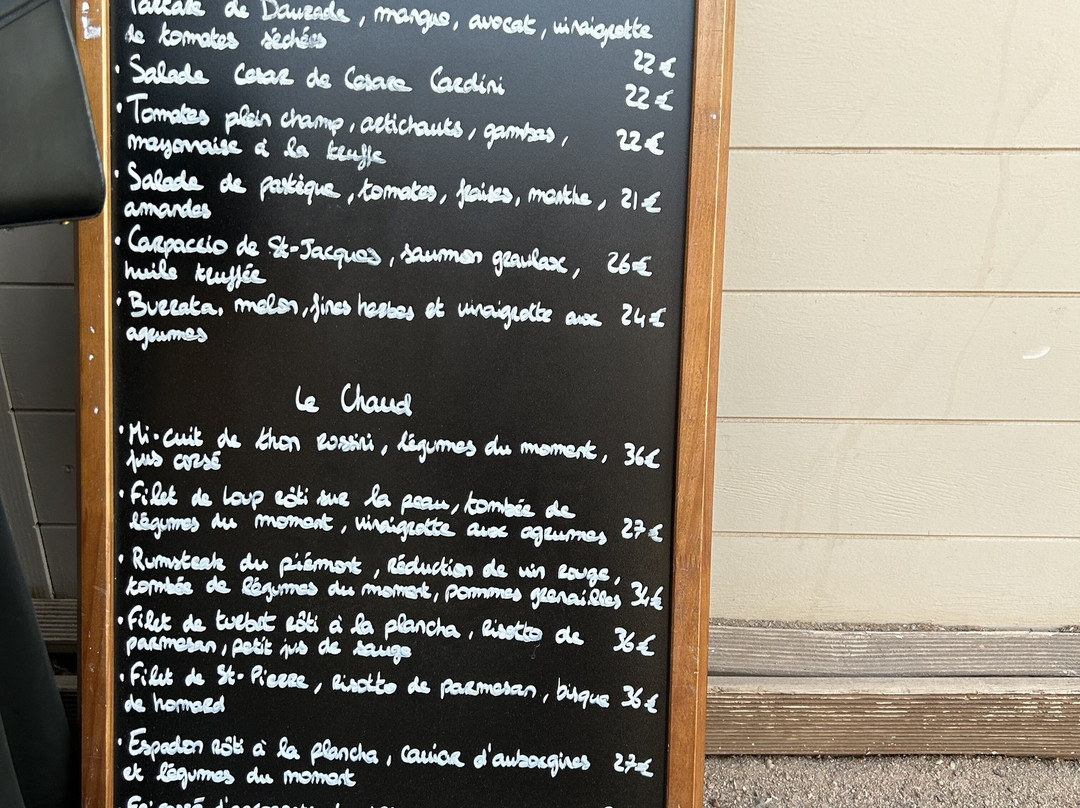 Tartare de Daurade, mangue, avocat, vinaigrette
de tomates séchées 22€
· Salade Cesar de Cesare Cardini 22€
· Tomates plein champ, artichauts, gambas, 22€
mayonaise à la truffe
· Salade de pastèque, tomates, fraises, menthe, 21€
amandes
· Carpaccio de St-Jacques, saumon gravlax, 26€
huile truffée
· Burrata, melon, fines herbes et vinaigrette aux 24€
agrumes
Le Chaud
· Mi-cuit de thon rossini, légumes du moment, 36€
jus corsé
· Filet de Loup rôti sur la peau, tombée de
légumes du moment, vinaigrette aux agrumes 27€
· Rumsteak du piémont, réduction de vin rouge,
tombée de légumes du moment, pommes grenailles 34€
· Filet de turbot rôti à la plancha, risotto de 36€
parmesan, petit jus de sauge
· Filet de St-Pierre, risotto de parmesan, bisque 36€
de homard
· Espadon rôti à la plancha, caviar d'aubergines 27€
et légumes du moment